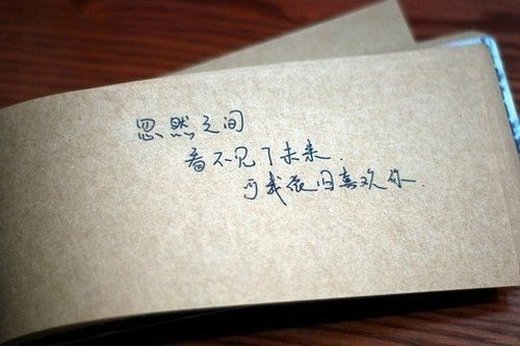 忽然之间
看不见了未来.
可我依旧喜欢你.